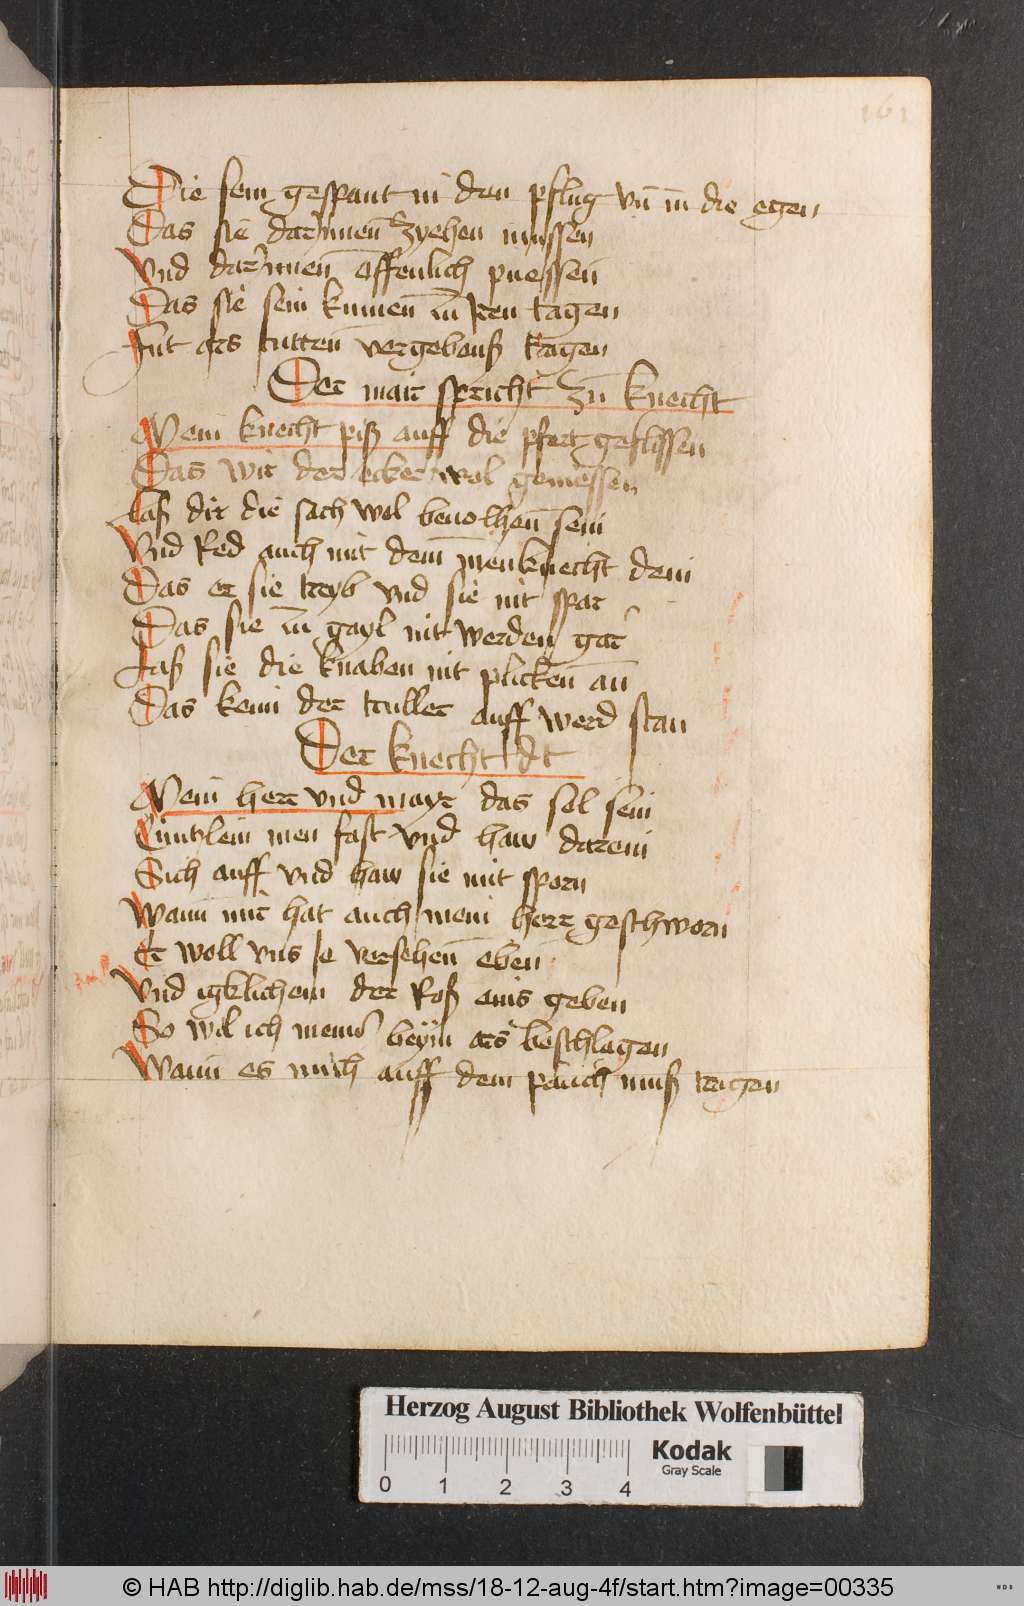 161
Die sein gespant in den pflug vn̄ in die egen
Das sie dar Inneñ zyehen mussen
Vnd dar Inneñ offenlich puessen
Das sie sein kumen in̄ Iren tagen
Fut ars tutten vergebens tragen
Der mair spricht zu knecht
Mein knecht piß auff die pfert geflissen
Das wir der ecker wol geniessen
Laß dir die sach wol beuolhen̄ sein
Vnd Red auch mit dem menknecht dein
Das er sie treyb vnd sie nit spar
Das sie in̄ gayl nit werden gar
Laß sie die knaben nit plicken̄ an̄
Das keim der truller auff werd stan
Der knecht dt
Mein herr vnd mayr das sol sein
Cuntzlein men fast vnd haw darein
Sich auff vnd haw sie mit sporn
Wann mir hat auch mein herr geschworn
Er woll vns Ie versehen̄ eben
Vnd igklichem der Roß eins geben
So wil ich meins beym ars beschlagen
Wann es mich auff dem pauch muß tragen
Herzog August Bibliothek Wolfenbüttel
Kodak
Gray Scale
0 1 2 3 4
© HAB http://diglib.hab.de/mss/18-12-aug-4f/start.htm?image=00335